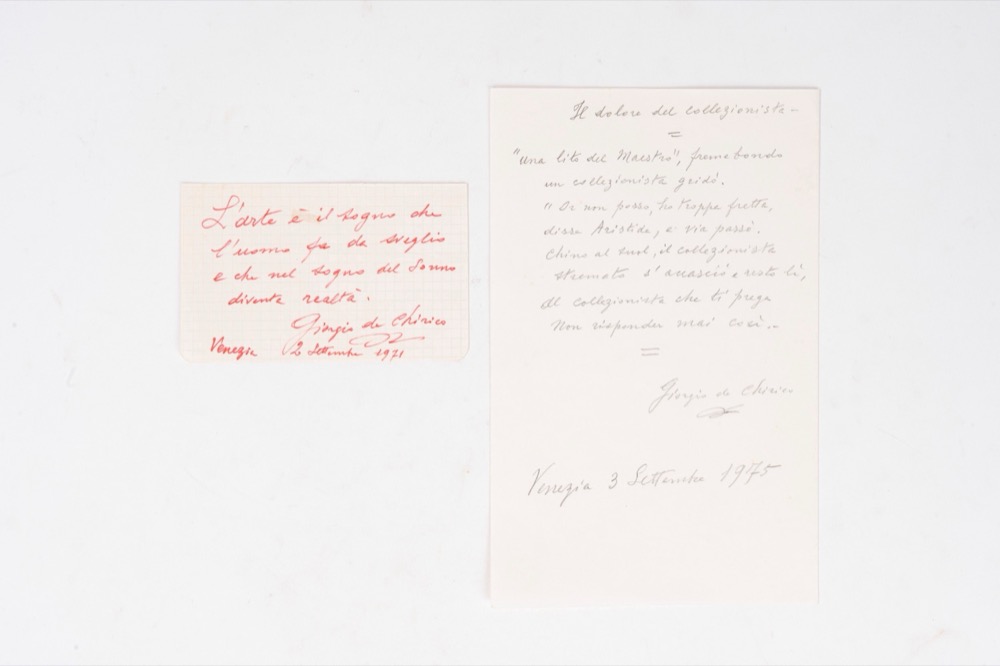 L'arte è il sogno che
l'uomo fa da sveglio
e che nel sogno del Sonno
diventa realtà.
Giorgio de Chirico
Venezia 2 Settembre 1971
Il dolore del collezionista –
"una lito del Maestro", fremebondo
un collezionista gridò.
"Or non posso, ho troppa fretta,
disse Aristide, e via passò.
Chino al suol, il collezionista
stremato s'accasciò e restò lì,
Al collezionista che ti prega
Non risponder mai così.–
Giorgio de Chirico
Venezia 3 Settembre 1975